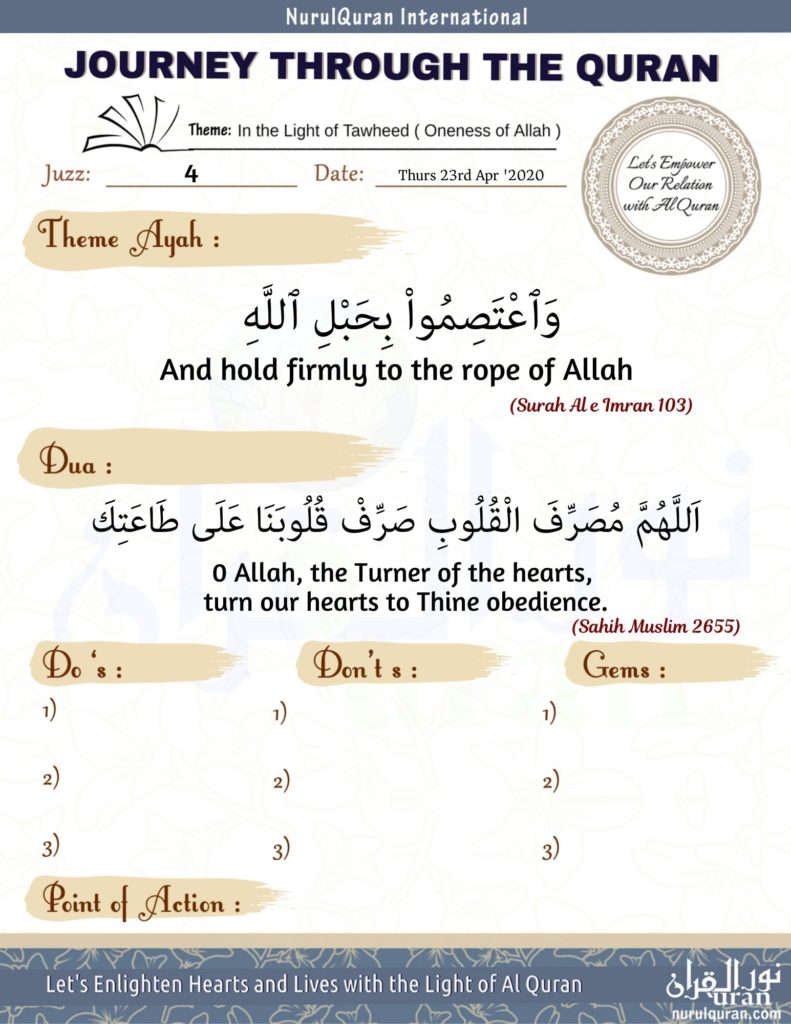 NurulQuran International
JOURNEY THROUGH THE QURAN
Theme: In the Light of Tawheed ( Oneness of Allah )
Juzz: 4 Date: Thurs 23rd Apr '2020
Let's Empower
Our Relation
with Al Quran
Theme Ayah :
وَٱعْتَصِمُوا۟ بِحَبْلِ ٱللَّهِ
And hold firmly to the rope of Allah
(Surah Al e Imran 103)
Dua :
اَللَّهُمَّ مُصَرِّفَ الْقُلُوبِ صَرِّفْ قُلُوبَنَا عَلَى طَاعَتِكَ
O Allah, the Turner of the hearts,
turn our hearts to Thine obedience.
(Sahih Muslim 2655)
Do 's :
1)
2)
3)
Don't s :
1)
2)
3)
Gems :
1)
2)
3)
Point of Action :
Let's Enlighten Hearts and Lives with the Light of Al Quran
نور القرآن
uran
nurulquran.com